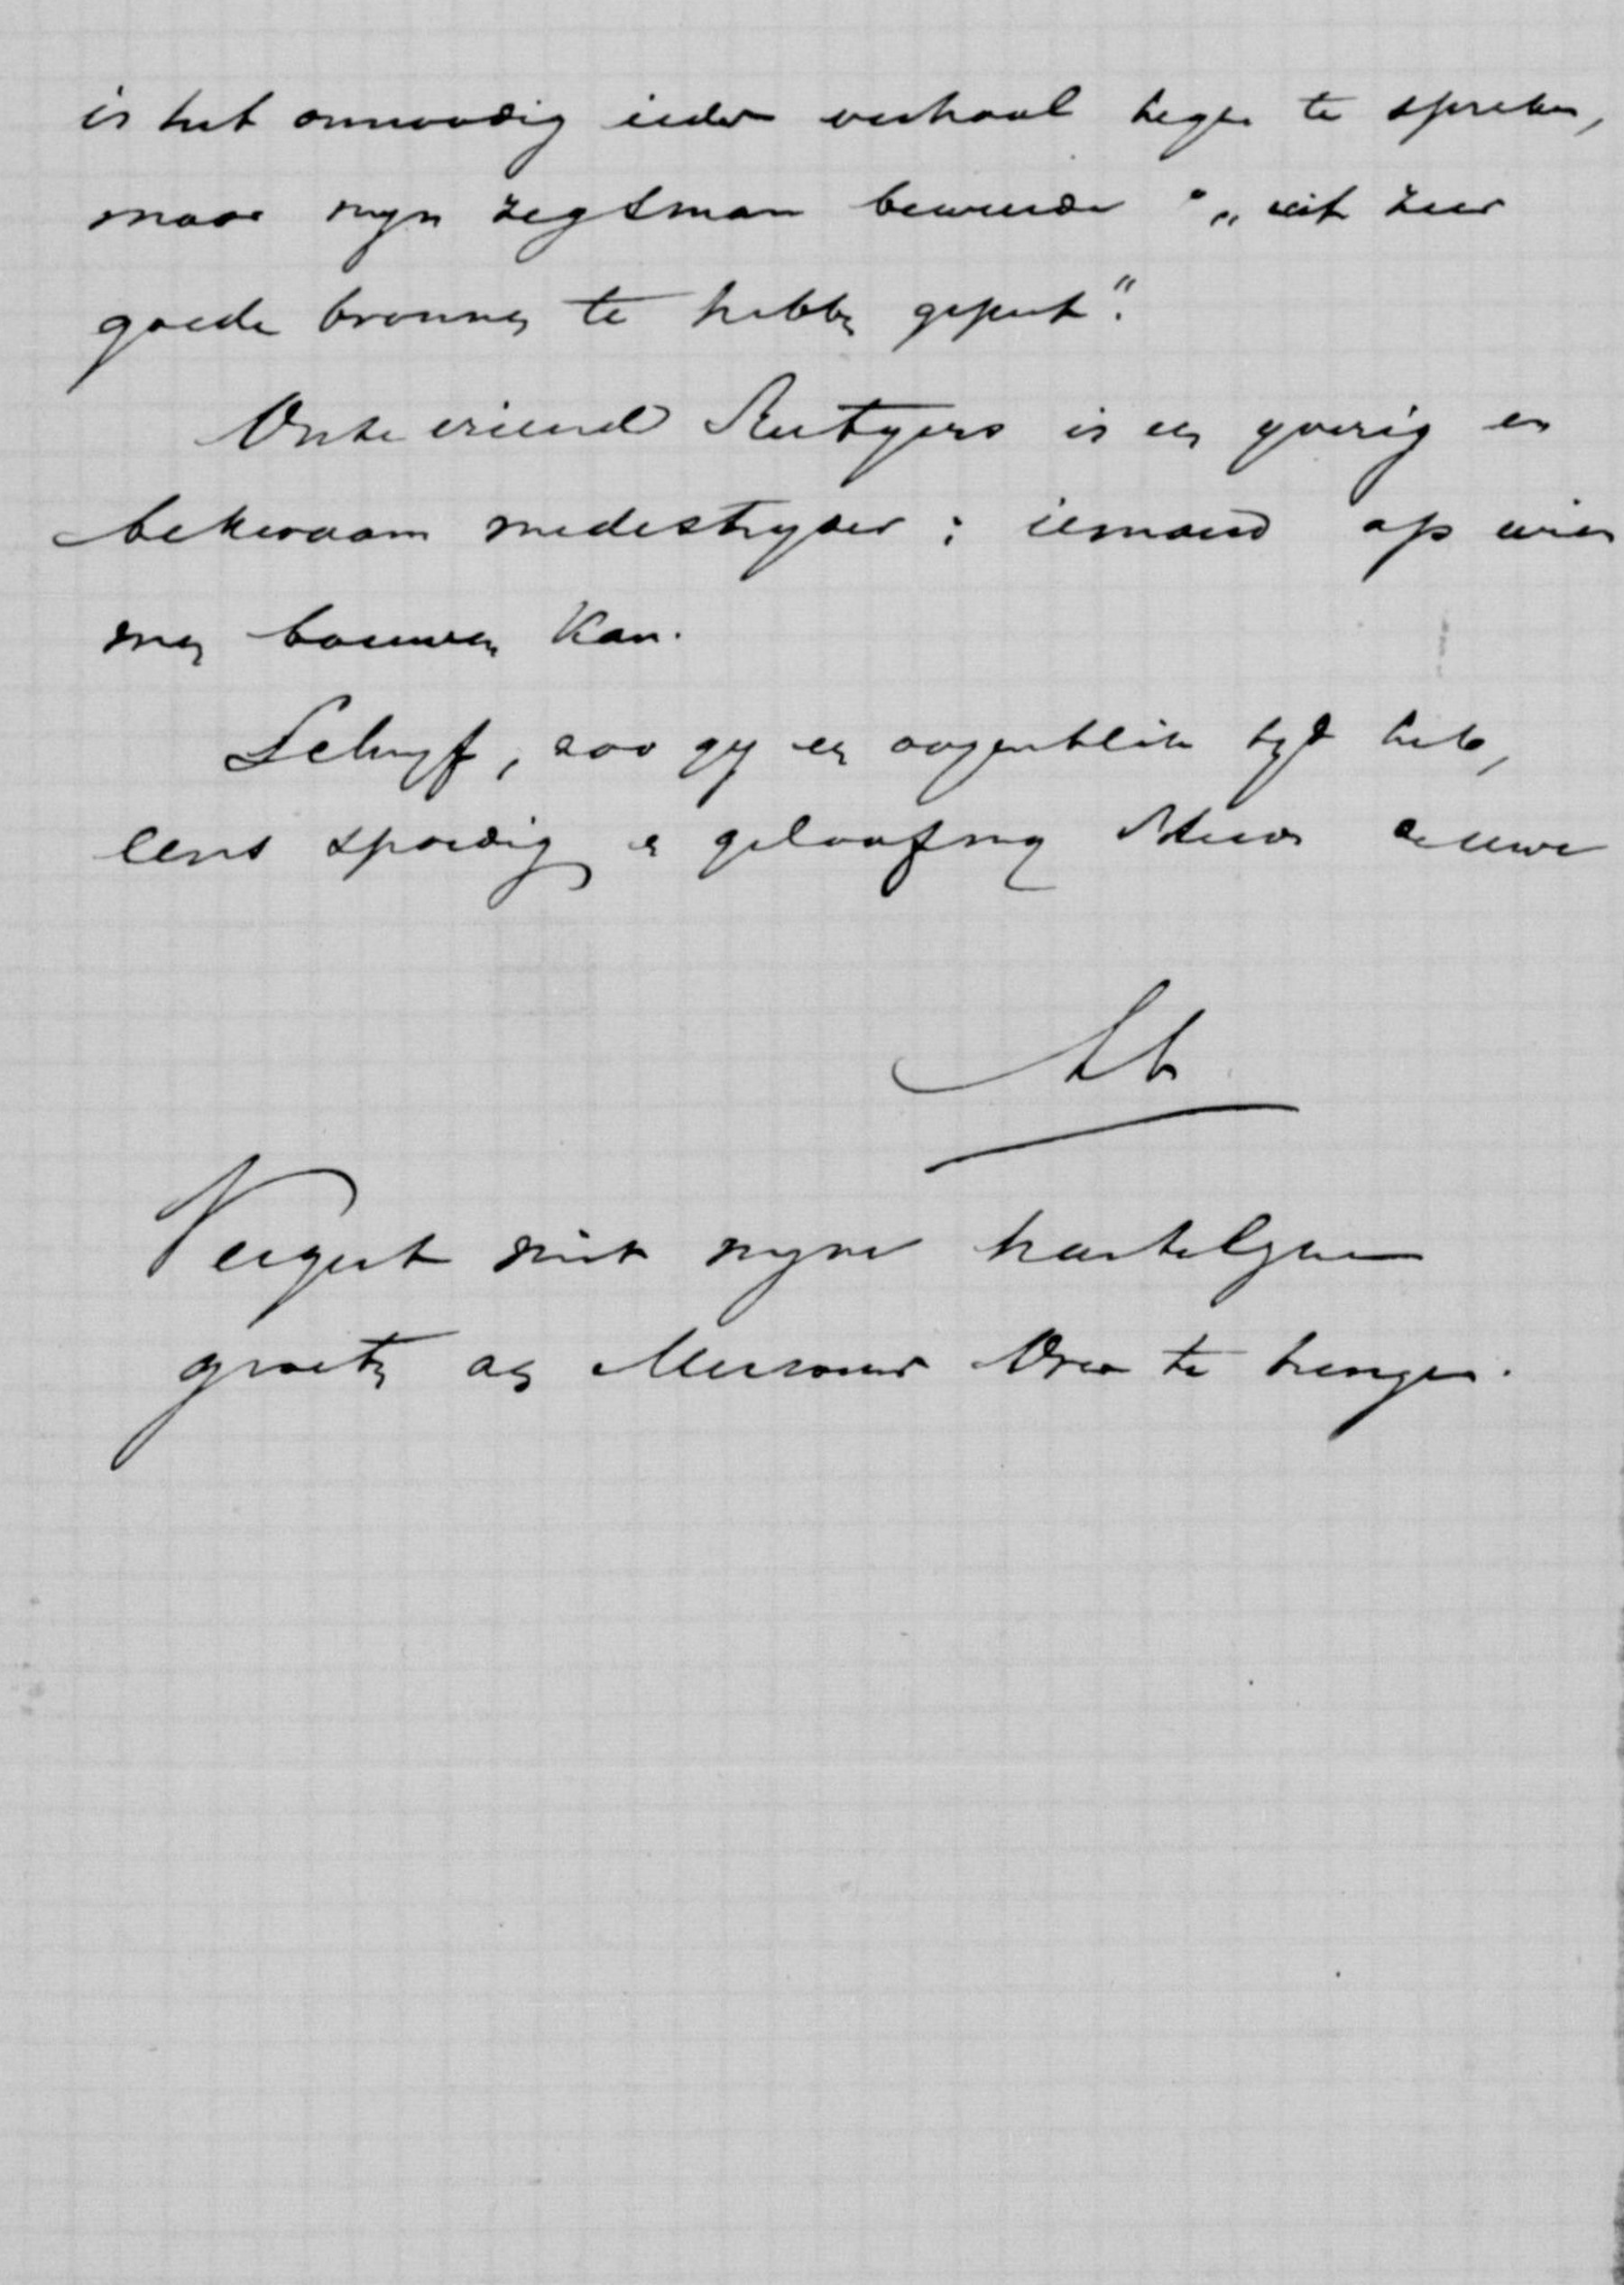 is het onnoodig ieder verhaal tegen te spreken,
maar mijn zegsman beweerde „uit zeer
goede bronnen te hebben geput".
Onze vriend Rutgers is een yverig en
bekwaam medestryder; iemand op wien
men bouwen kan.
Schryf, zoo gy een oogenblik tyd hebt,
eens spoedig en geloof my steeds de uwe
Vergeet niet myne hartelyke
groeten aan Mevrouw over te brengen.